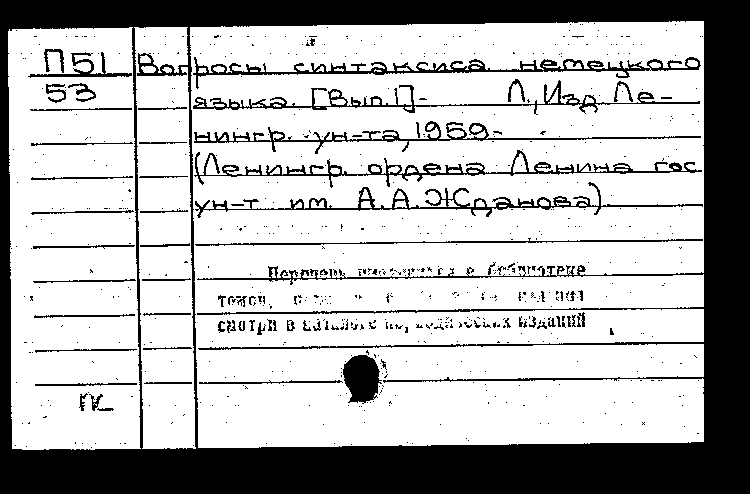 П51 Вопросы синтаксиса немецкого
53 языка. [Вып.1]- Л., Изд. Ле-
нингр. ун-та, 1959-
(Ленингр. ордена Ленина гос.
ун-т им. А.А.Жданова).
Перечень имеющихся в библиотеке
томов,
смотри в каталоге периодических изданий